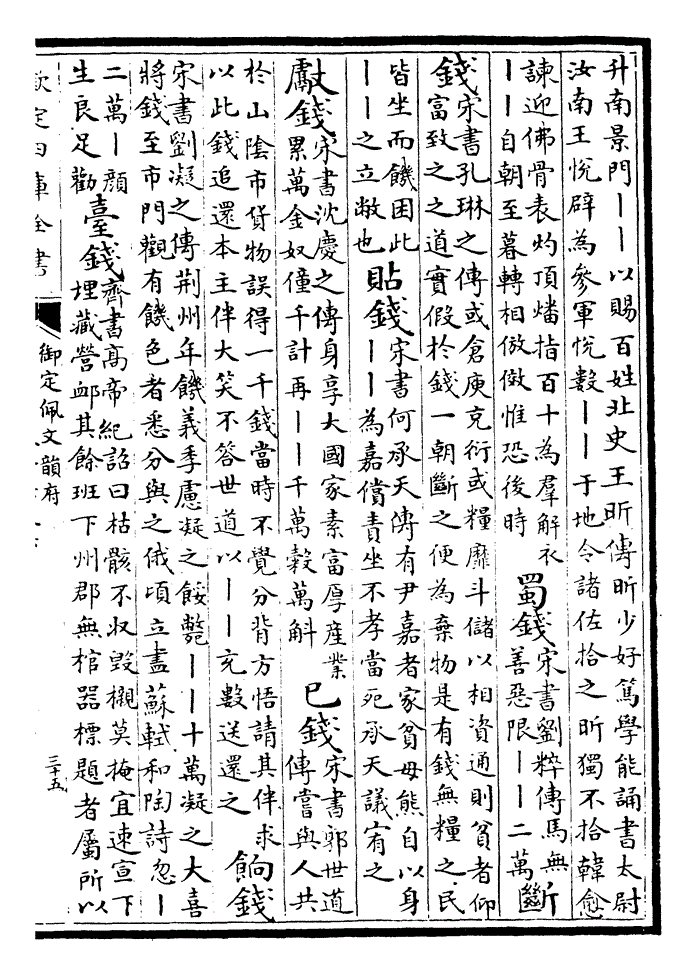 升南景門丨丨以賜百姓北史王昕傳昕少好篤學能誦書太尉
汝南王悅辟為參軍悅數丨丨于地令諸佐拾之昕獨不拾韓愈
諫迎佛骨表灼頂燔指百十為羣解衣
丨丨自朝至暮轉相倣傚惟恐後時
蜀錢
宋書劉粹傳馬無
善惡限丨丨二萬
斷
錢
宋書孔琳之傳或倉庾充衍或糧靡斗儲以相資通則貧者仰
富致之之道實假於錢一朝斷之便為棄物是有錢無糧之民
皆坐而饑困此
丨丨之立敝也
貼錢
宋書何承天傳有尹嘉者家貧母熊自以身
丨丨為嘉償責坐不孝當死承天議宥之
獻錢
宋書沈慶之傳身享大國家素富厚產業
累萬金奴僮千計再丨丨千萬穀萬斛
已錢
宋書郭世道
傳嘗與人共
於山陰市貨物誤得一千錢當時不覺分背方悟請其伴求
以此錢追還本主伴大笑不答世道以丨丨充數送還之
餉錢
宋書劉凝之傳荆州年饑義季慮凝之餒斃丨丨十萬凝之大喜
將錢至市門觀有饑色者悉分與之俄頃立盡蘇軾和陶詩忽丨
二萬丨顏
生良足勸
臺錢
齊書高帝紀詔曰枯骸不收毀櫬莫掩宜速宣下
埋藏營卹其餘班下州郡無棺器標題者屬所以
欽定四庫全書
御定佩文韻府
三十五